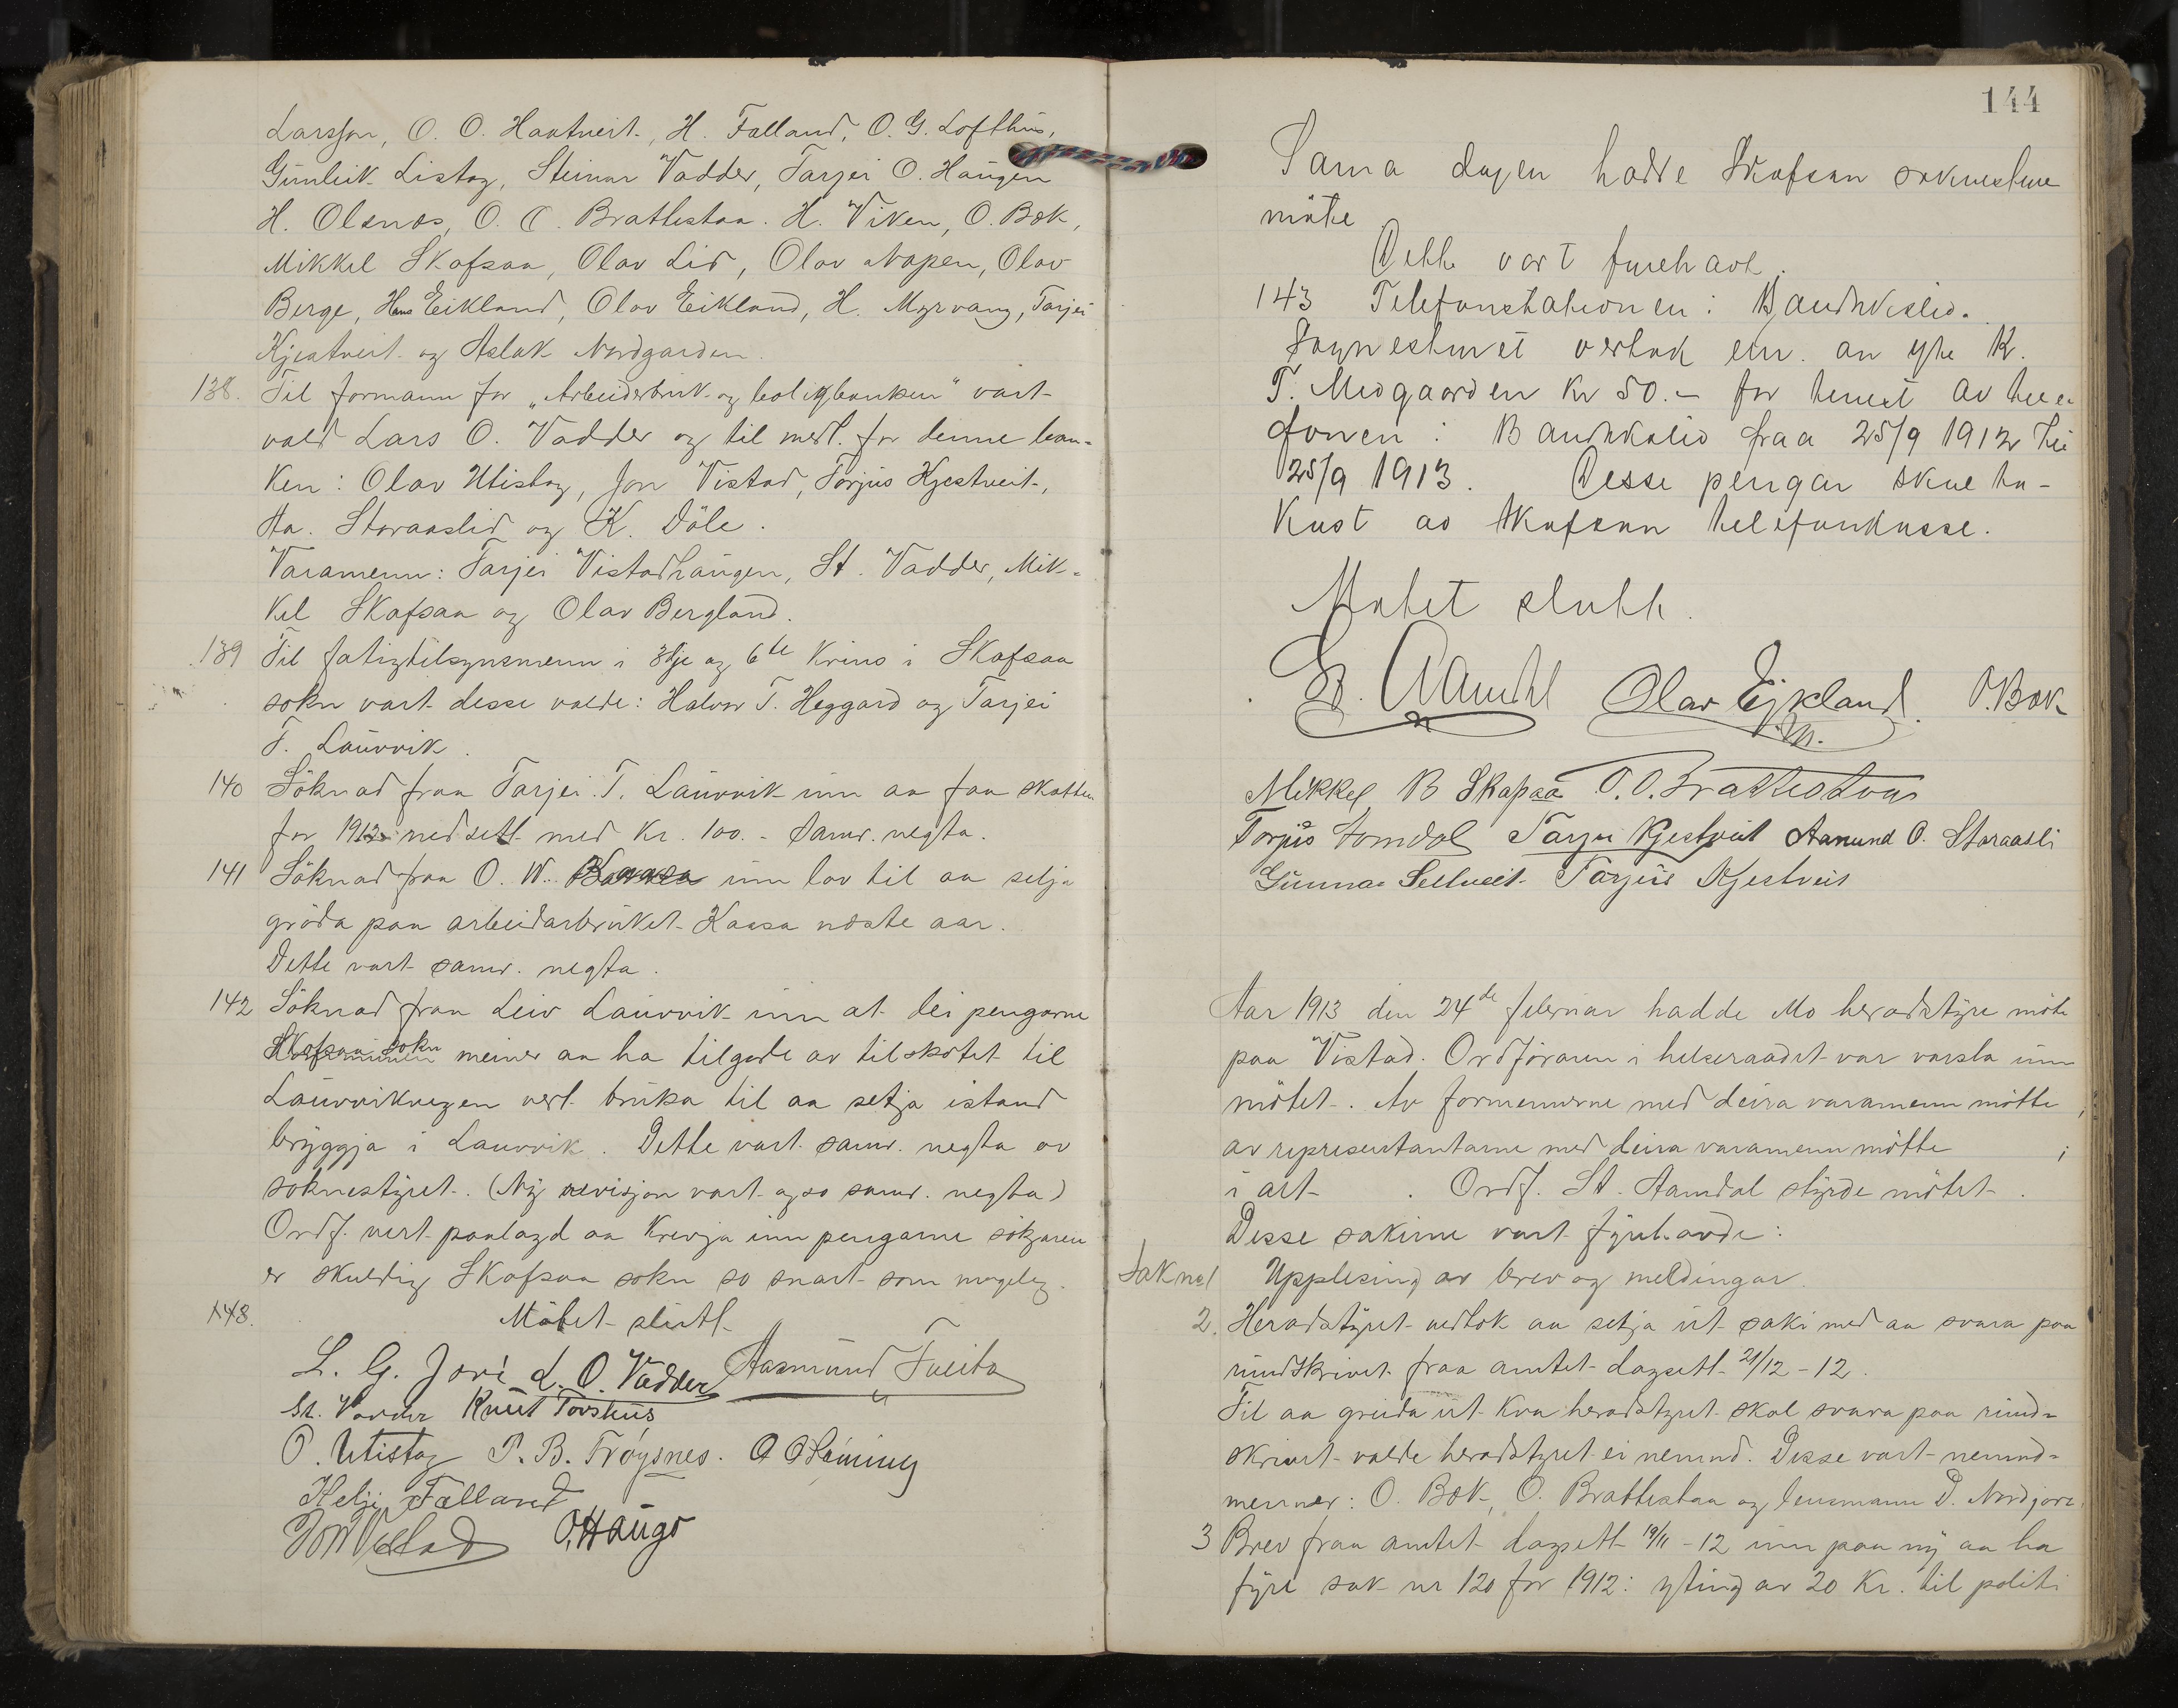 Larsson, O. O. Haatveit, H. Falland, O. G. Lofthus,
Gunleik Listog, Steinar Vadder, Tarjei O. Haugen
H. Olsnes, O. O. Brattestaa. H. Viken, O. Bøk,
Mikkel Skafsaa, Olav Lid, Olav Napen, Olav
Berge, Hans Eikland, Olav Eikland, H. Myrvang, Tarjei
Kjestveit og Aslak Nordgarden.
138. Til formann for „Arbeiderbruk og boligbanken" vart
vald Lars O. Vadder og til medl. for denne ban-
ken: Olav Utistog, Jon Vistad, Torjus Kjestveit,
Aa. Staraaslid og K. Döle.
Varamenn: Tarjei Vistadhaugen, St. Vadder, Mik-
kel Skafsaa og Olav Bergland.
139 Til fatigtilsynsmenn i 3dje og 6te krins i Skafsaa
sokn vart desse valde: Halvor T. Heggard og Tarjei
T. Lauvvik.
140 Söknad fraa Tarjei T. Lauvvik um aa faa skatten
for 1912 nedsett med Kr. 100.- Samr. negta.
141 Söknad fraa O. W. um lov til aa selja
gröda paa arbeidarbruket Kaasa næste aar.
Dette vart samr. negta.
142 Söknad fraa Leiv Lauvvik um at dei pengarne
Skafsaa sokn meiner aa ha tilgode av tilskotet til
Lauvvikvegen vert bruka til aa setja istand
bryggja i Lauvvik. Dette vart samr. negta av
soknestyret. (Ny revisjon vart ogso samr. negta)
Ordf. vert paalagd aa krevja inn pengarne søkjaren
er skuldig Skafsaa sokn so snart som mogeleg.
148. Mötet slutt
L. G. Jore L. O. Vadder Aasmund Tveito
St. Vadder Knut Torshus
O. Utistog P. B. Frøysnes. O O
Helje Falland
Jon Vistad O. Haugo
144
Sama dagen hadde Skafsaa soknestyre
møte
Dette vart fyrehavt.
143 Telefonstationen i Bandakslid.
Soknestyret vedtok ein. aa yte K.
T. Midgaarden kr 50.- for tenest av tele
fonen i Bandakslid fraa 25/9 1912 til
25/9 1913. Desse pengar skue ta-
kast av Skafsaa telefonkasse.
Møtet slutt.
St. Aamdal Olav Ejkland. O. Bøk
Mikkel B Skafsaa O. O. Brattestaa
Torjus Tarjei Kjestveit Aanund O. Staraasli
Gunnar Seltveit Torjus Kjestveit
Aar 1913 den 24de februar hadde Mo heradstyre möte
paa Vistad. Ordföraren i helseraadet var varsla um
mötet. Av formennerne med deira varamenn mötte ;
av representantarne med deira varamenn mötte ;
i alt . Ordf. St. Aamdal styrde mötet.
Desse sakirne vart fyrehavde:
Sak no 1 Upplesing av brev og meldingar.
2. Heradstyret vedtok aa setja ut saki med aa svara paa
rundskrivet fraa amtet dagsett 21/12-12.
Til aa greida ut kva heradstyret skal svara paa rund-
skrivet valde heradstyret ei nemnd. Disse vart nemnd-
menner: O. Bøk, O. Brattestaa og lensmann D. Nordgard.
3 Brev fraa amtet dagsett 19/11-12 um paa ny aa ha
fyre sak nr 120 for 1912: yting av 20 Kr. til politi